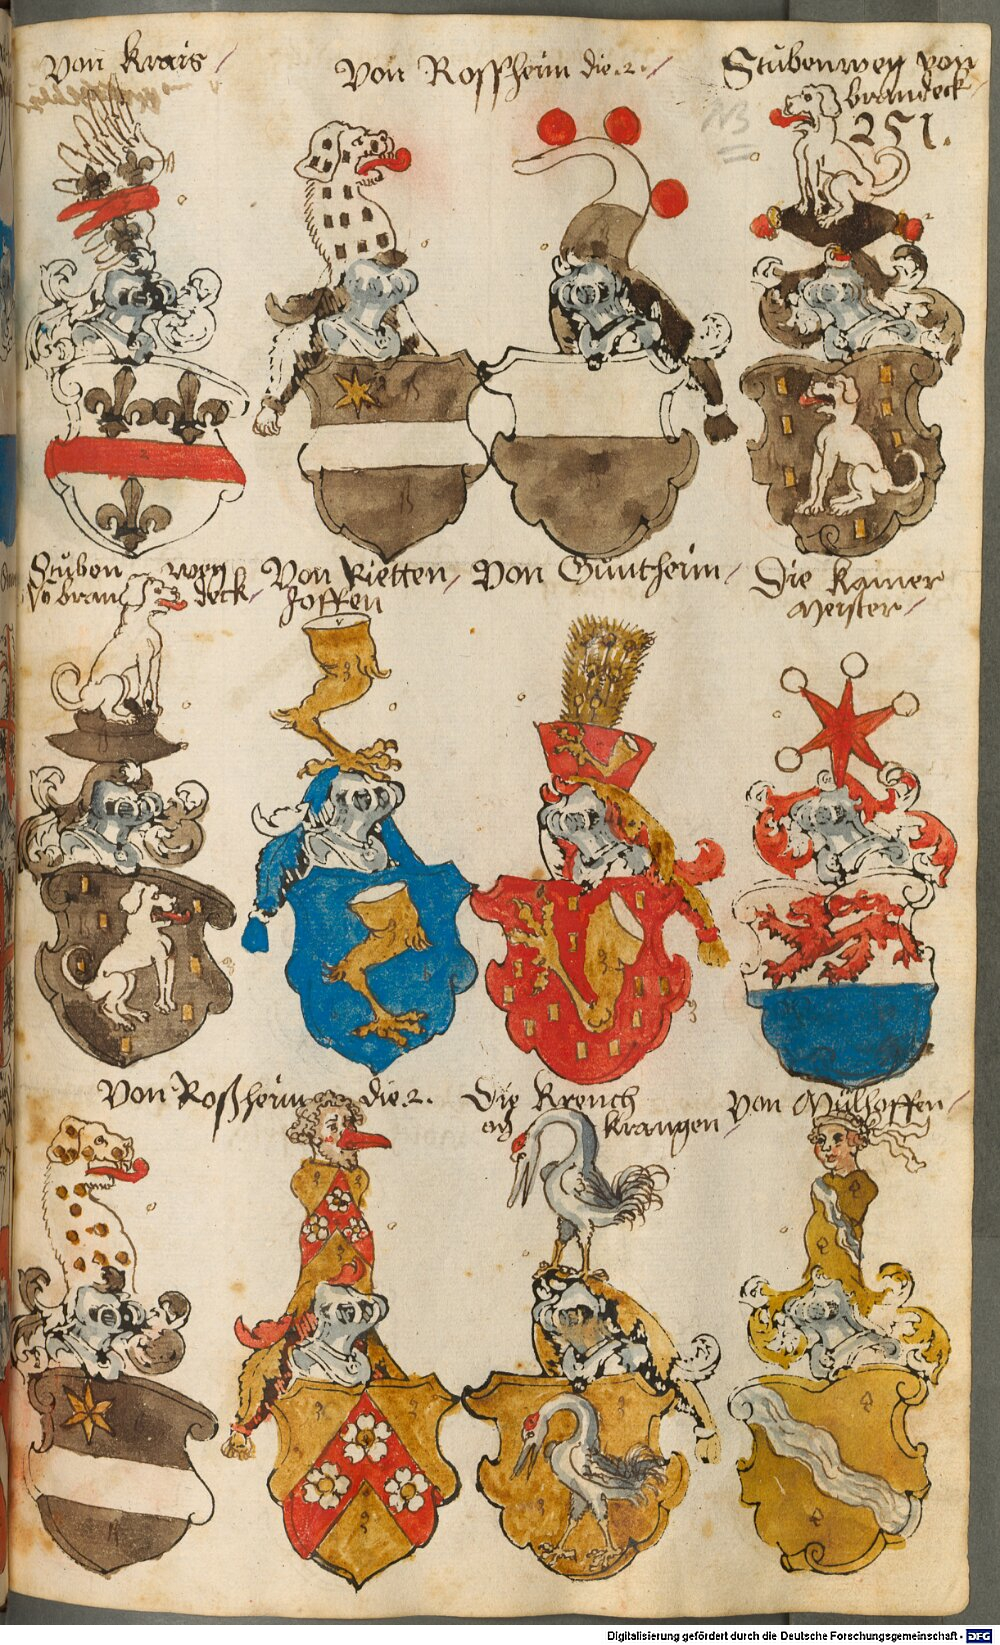 Von Krais
Von Rossheim die .2.
Stubenweg von
brandeck
251.
Stuben weg
vo bran deck
Von Rietten
hoffen
Von Guntheim
Die Kamer
Meister
Von Roßheim die .2.
Die Krench
Krangen
Von Mülhoffen
Digitalisierung gefördert durch die Deutsche Forschungsgemeinschaft - DFG